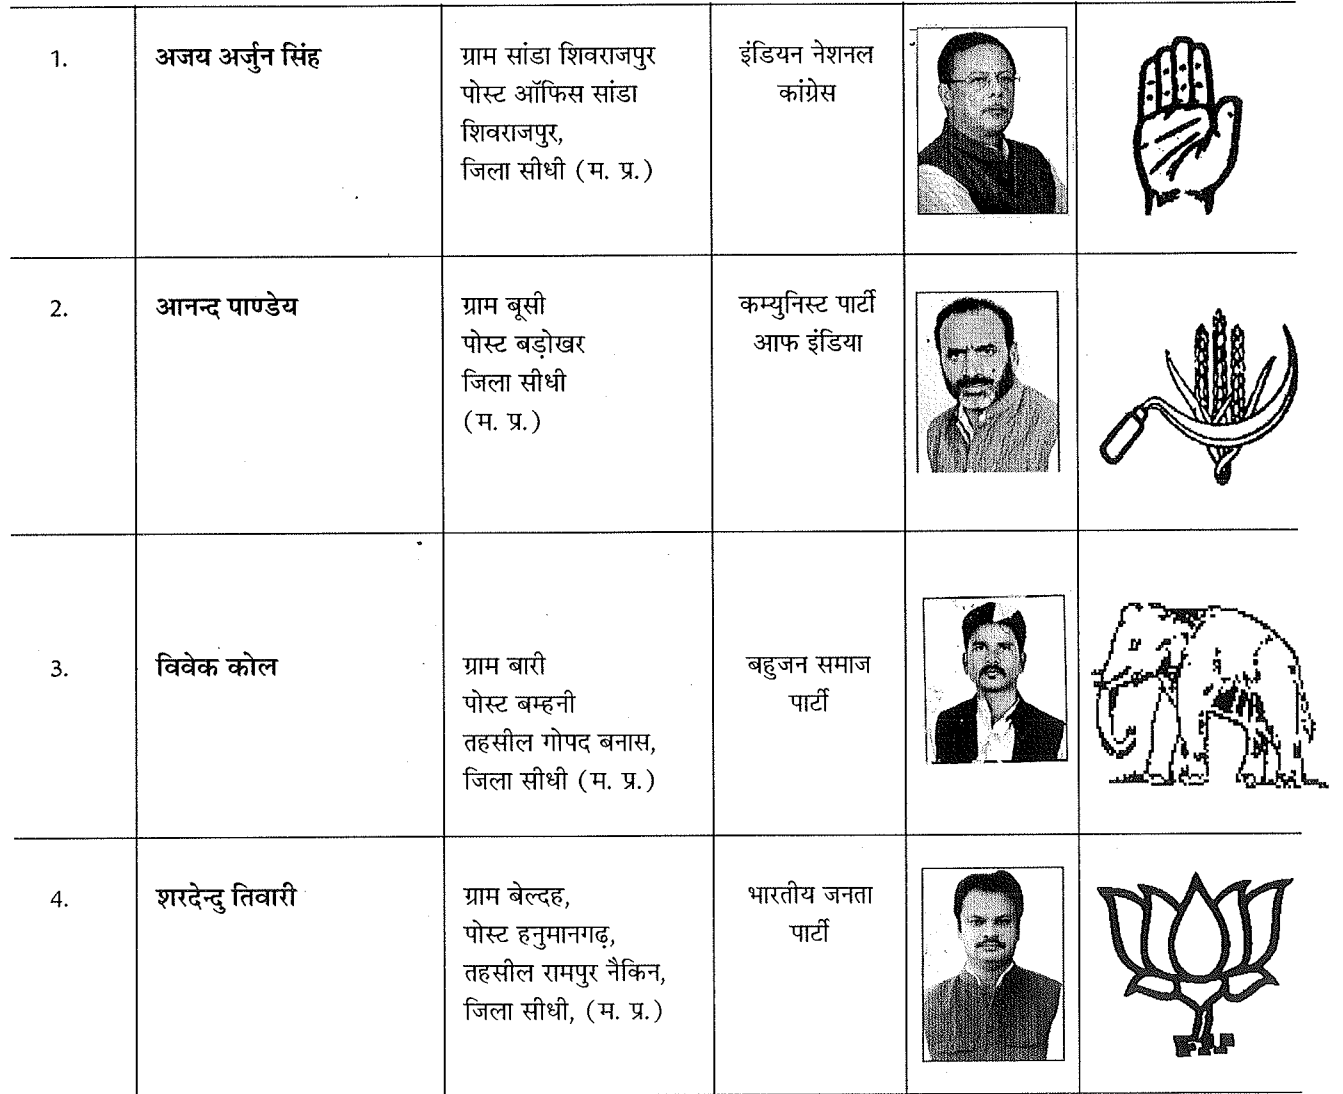 1.
अजय अर्जुन सिंह
ग्राम सांडा शिवराजपुर
पोस्ट ऑफिस सांडा
शिवराजपुर,
जिला सीधी (म. प्र.)
इंडियन नेशनल
कांग्रेस
2.
आनन्द पाण्डेय
ग्राम बूसी
पोस्ट बड़ोखर
जिला सीधी
(म. प्र.)
कम्युनिस्ट पार्टी
आफ इंडिया
3.
विवेक कोल
ग्राम बारी
पोस्ट बम्हनी
तहसील गोपद बनास,
जिला सीधी (म. प्र.)
बहुजन समाज
पार्टी
4.
शरदेन्दु तिवारी
ग्राम बेल्दह,
पोस्ट हनुमानगढ़,
तहसील रामपुर नैकिन,
जिला सीधी, (म. प्र.)
भारतीय जनता
पार्टी